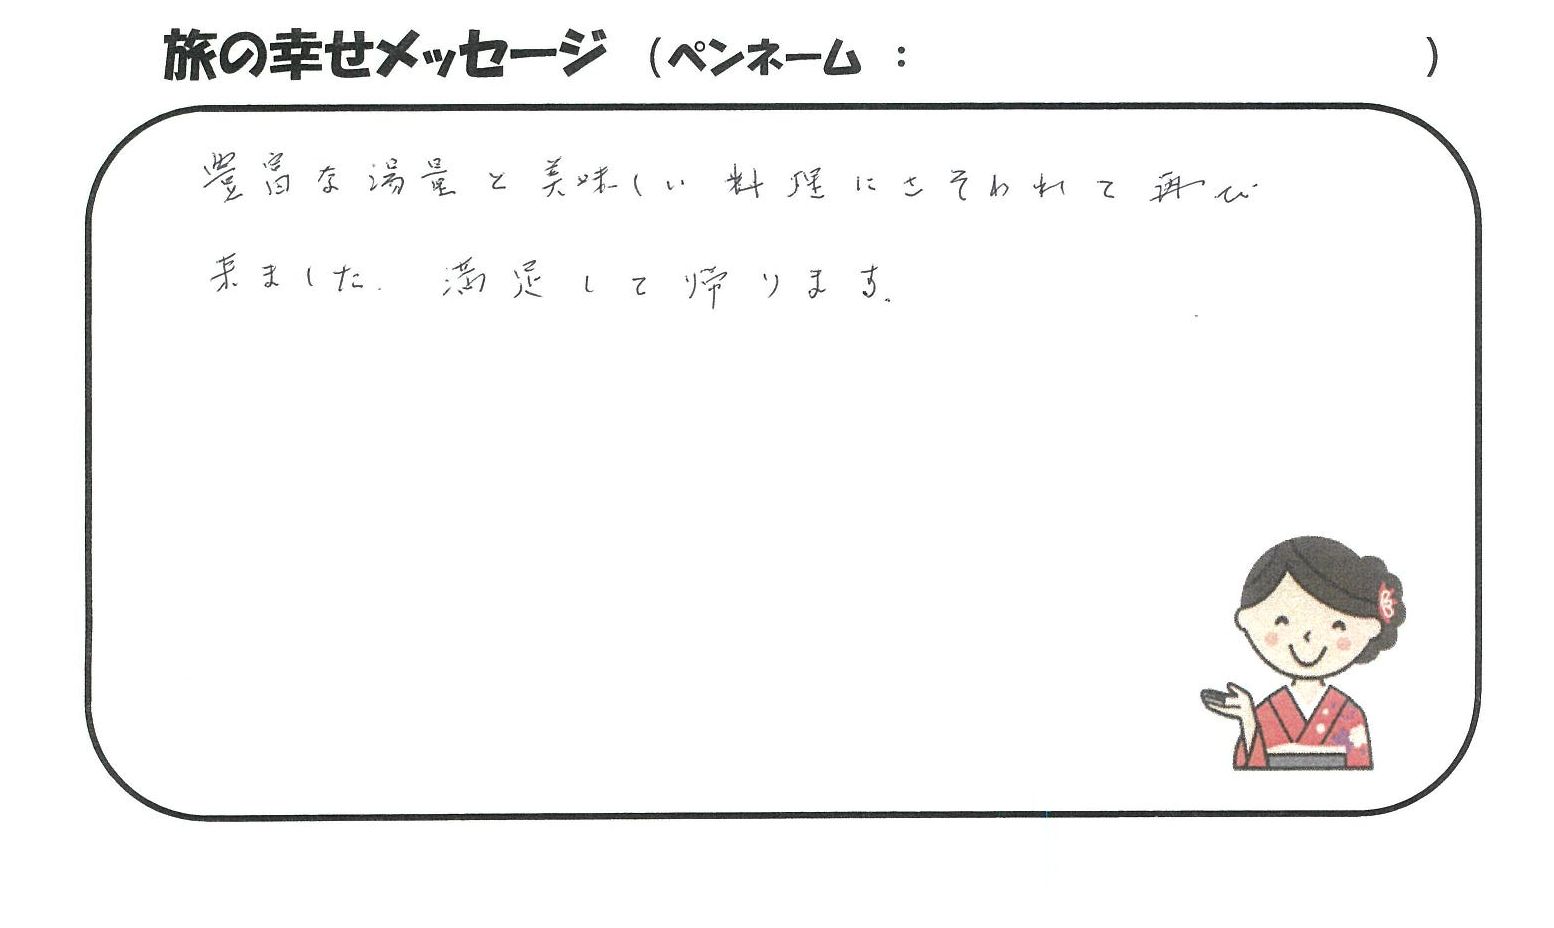 旅の幸せメッセージ （ペンネーム ： ）
豊富な湯量と美味しい料理にさそわれて再び
来ました。満足して帰ります。